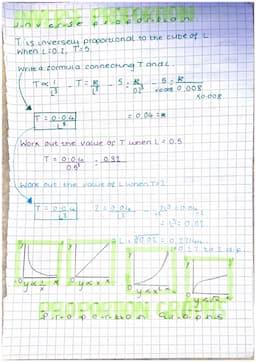 INVERSE PROPORTION
inverse proportion
T is inversely proportional to the cube of L
When L=0.2, T=5
Write a formula connecting T and L.
T∝ 1/L³ - T= k/L³ - 5= k/0.2³ - 5= k/0.008
×0.008 ×0.008
T = 0.04/L³ = 0.04 = k
Work out the value of T when L = 0.5
T = 0.04/0.5³ = 0.32
Work out the value of L when T=2
T = 0.04/L³ 2 = 0.04/L³ 2L³ = 0.04
L³ = 0.02
L = ³√0.02 = 0.27144
= 0.27 to 2 s.f.
y∝ 1/x y∝x y∝x² y∝√x
PROPORTION GRAPHS
Proportion Graphs